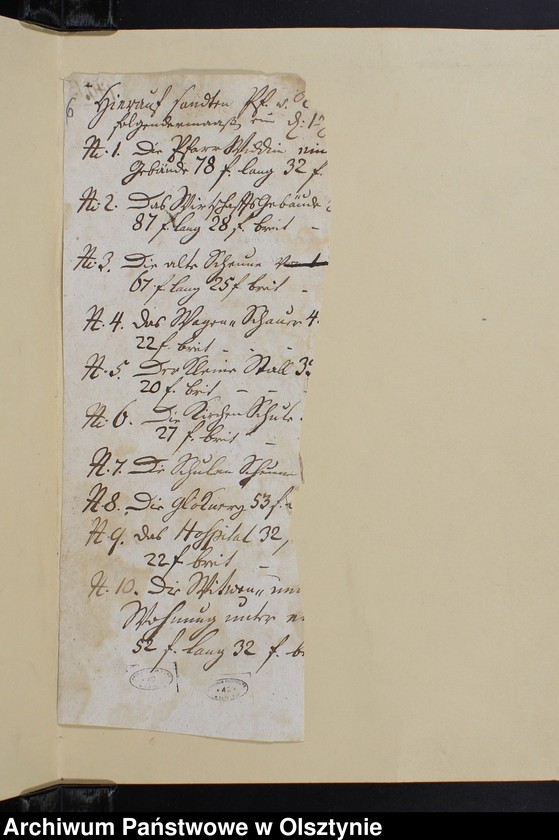 6
Hierauf sandten Pf. v.
folgendermaaßen d: 1
N: 1. Die Pfarr Widdin
Gebäude 78 f. lang 32 f.
N: 2. Das WirtschaftsGebäude
87 f. lang 28 f. breit –
N: 3. Die alte Scheune
67 f. lang 25 f breit –
N. 4. das Wagen Schauer 4.
22 f. breit – –
N. 5. Der Kleine Stall 3
20 f. breit – – –
N: 6. Die Kirchen Schule
27 f. breit –
N. 7. Die Schulen Scheune
N 8. Die Glöknerey 53 f.
N. 9. das Hospital 32,
22 f breit –
N. 10. Die Witwen
Wohnung unter
52 f. lang 32 f. b
Archiwum Państwowe w Olsztynie